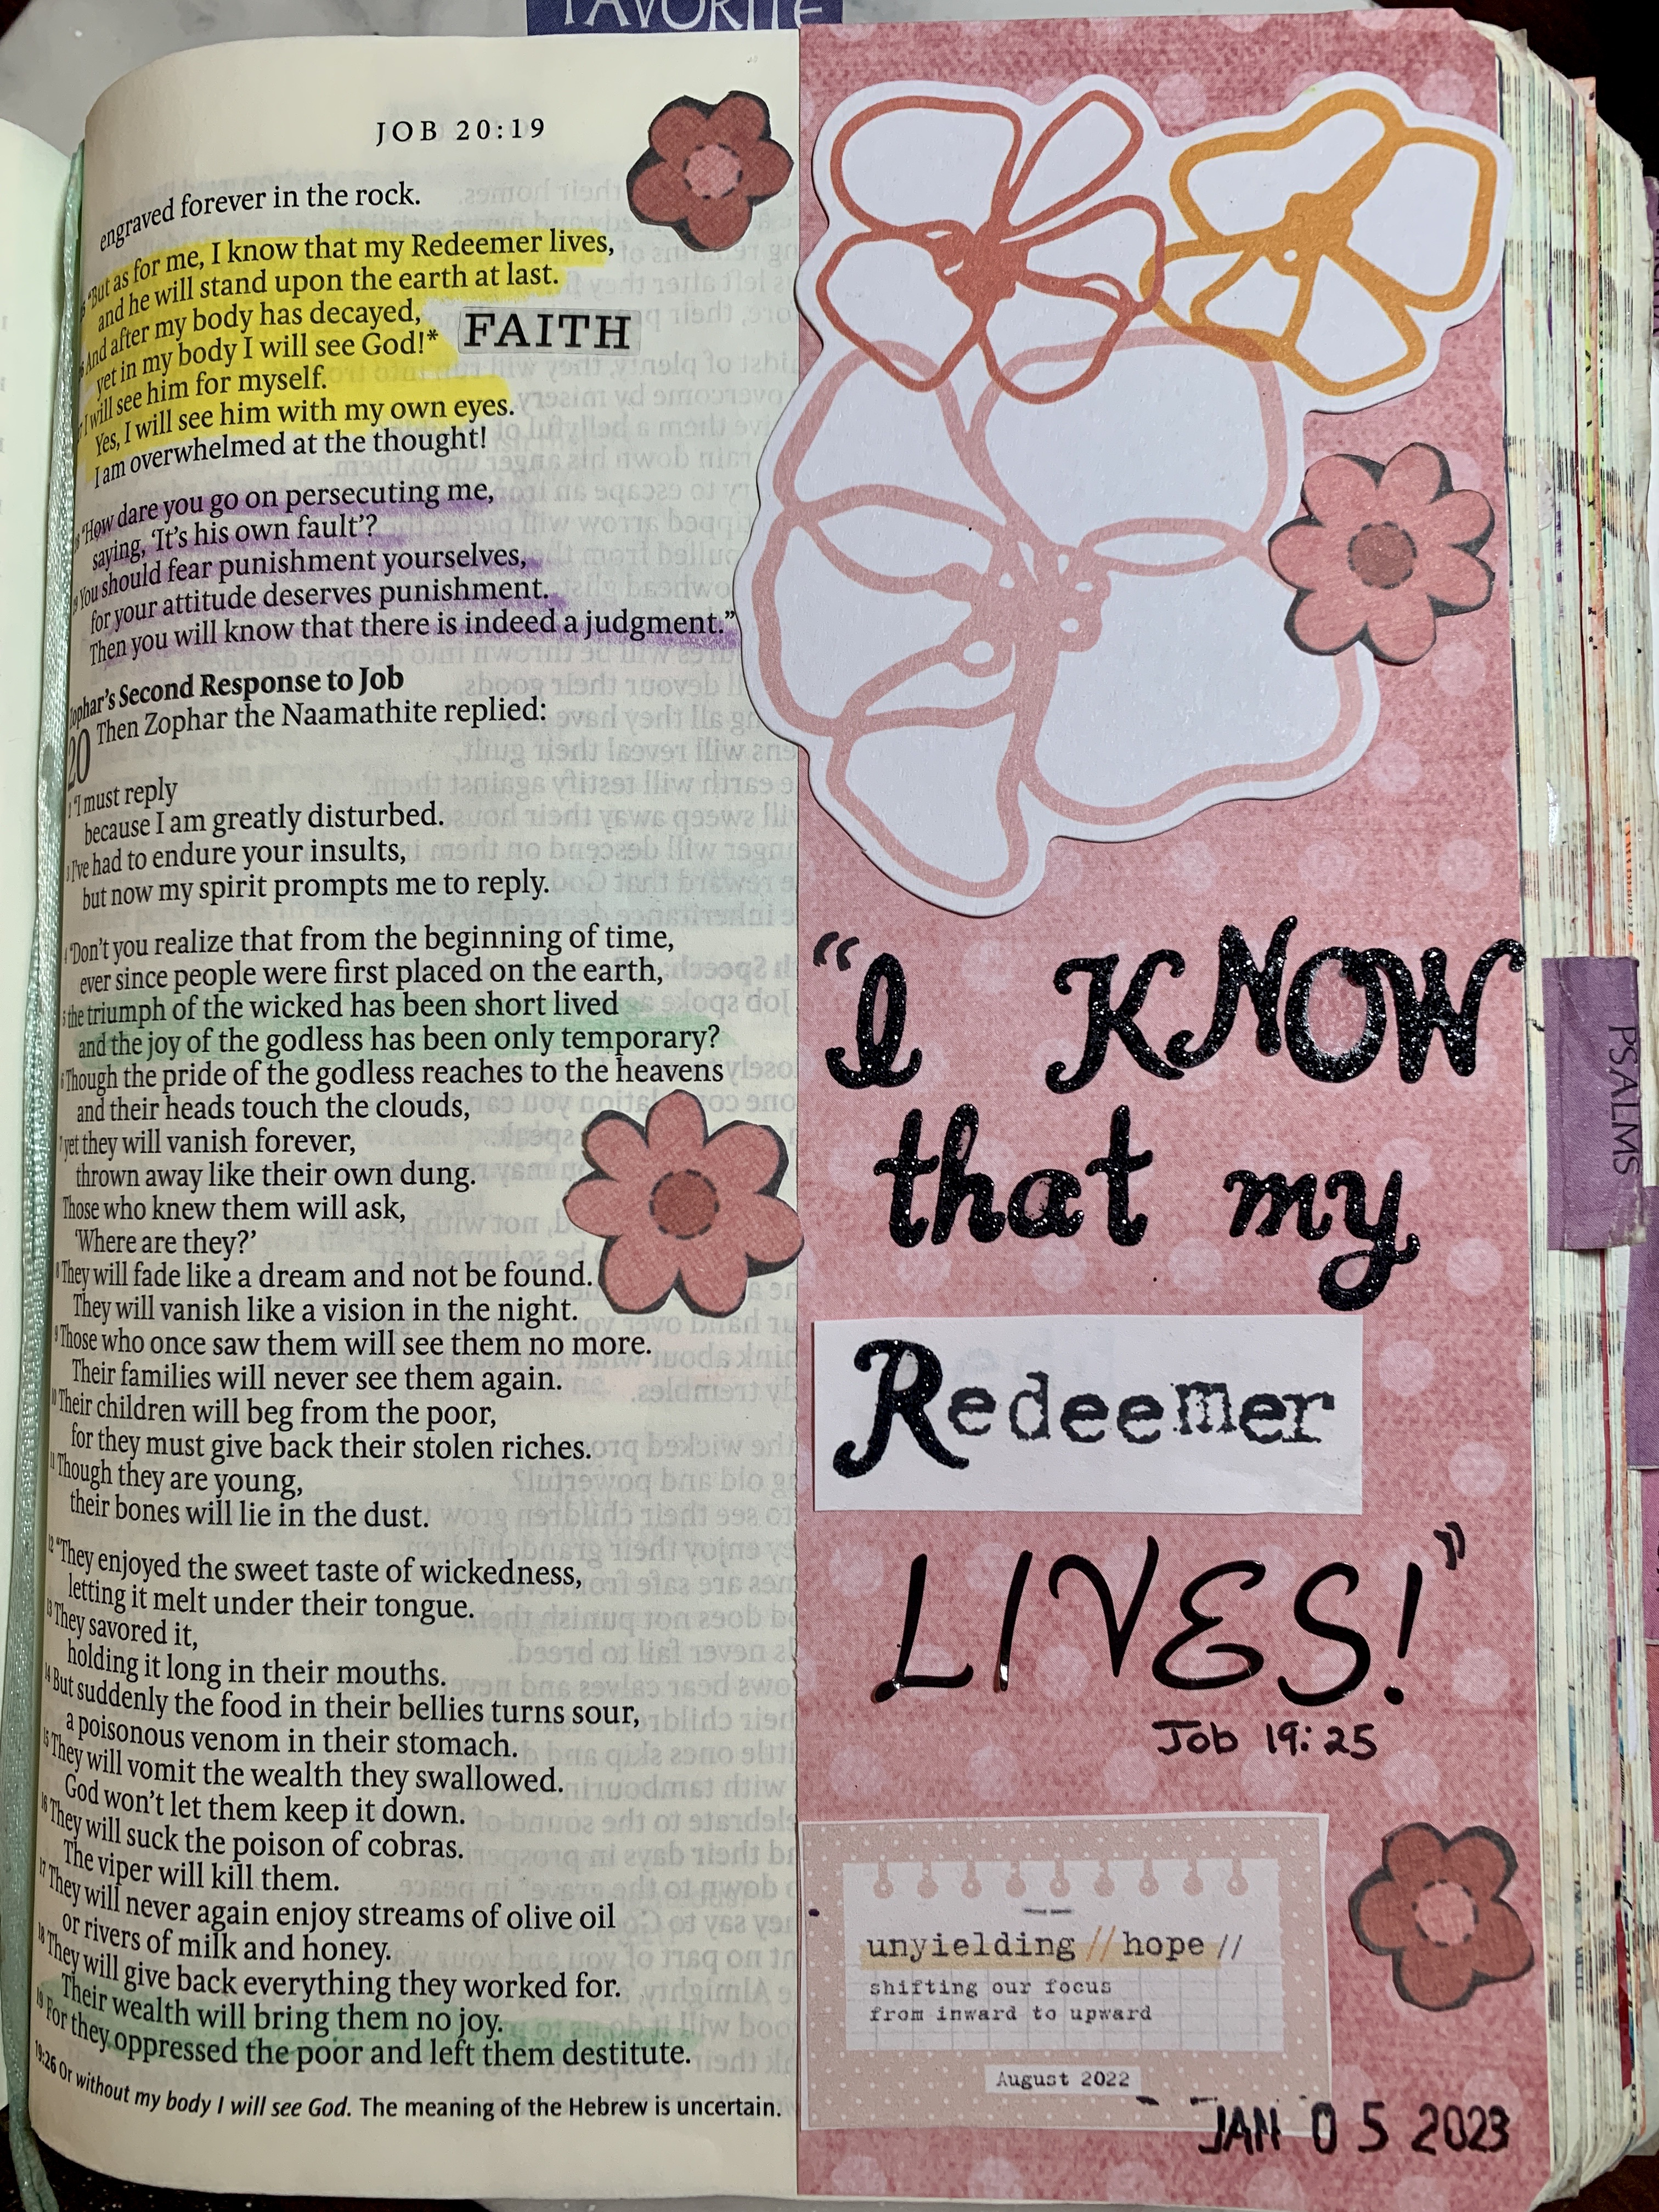 FAVORITE
JOB 20:19
engraved forever in the rock.
25 “But as for me, I know that my Redeemer lives,
and he will stand upon the earth at last.
26 And after my body has decayed,
yet in my body I will see God!*
FAITH
27 I will see him for myself.
Yes, I will see him with my own eyes.
I am overwhelmed at the thought!
28 “How dare you go on persecuting me,
saying, ‘It’s his own fault’?
29 You should fear punishment yourselves,
for your attitude deserves punishment.
Then you will know that there is indeed a judgment.”
Zophar’s Second Response to Job
20 Then Zophar the Naamathite replied:
2 “I must reply
because I am greatly disturbed.
3 I’ve had to endure your insults,
but now my spirit prompts me to reply.
4 “Don’t you realize that from the beginning of time,
ever since people were first placed on the earth,
5 the triumph of the wicked has been short lived
and the joy of the godless has been only temporary?
6 Though the pride of the godless reaches to the heavens
and their heads touch the clouds,
7 yet they will vanish forever,
thrown away like their own dung.
Those who knew them will ask,
‘Where are they?’
8 They will fade like a dream and not be found.
They will vanish like a vision in the night.
9 Those who once saw them will see them no more.
Their families will never see them again.
10 Their children will beg from the poor,
for they must give back their stolen riches.
11 Though they are young,
their bones will lie in the dust.
12 “They enjoyed the sweet taste of wickedness,
letting it melt under their tongue.
13 They savored it,
holding it long in their mouths.
14 But suddenly the food in their bellies turns sour,
a poisonous venom in their stomach.
15 They will vomit the wealth they swallowed.
God won’t let them keep it down.
16 They will suck the poison of cobras.
The viper will kill them.
17 They will never again enjoy streams of olive oil
or rivers of milk and honey.
18 They will give back everything they worked for.
Their wealth will bring them no joy.
19 For they oppressed the poor and left them destitute.
19:26 Or without my body I will see God. The meaning of the Hebrew is uncertain.
“I KNOW
that my
Redeemer
LIVES!”
Job 19:25
unyielding // hope //
shifting our focus
from inward to upward
August 2022
JAN 05 2023
PSALMS